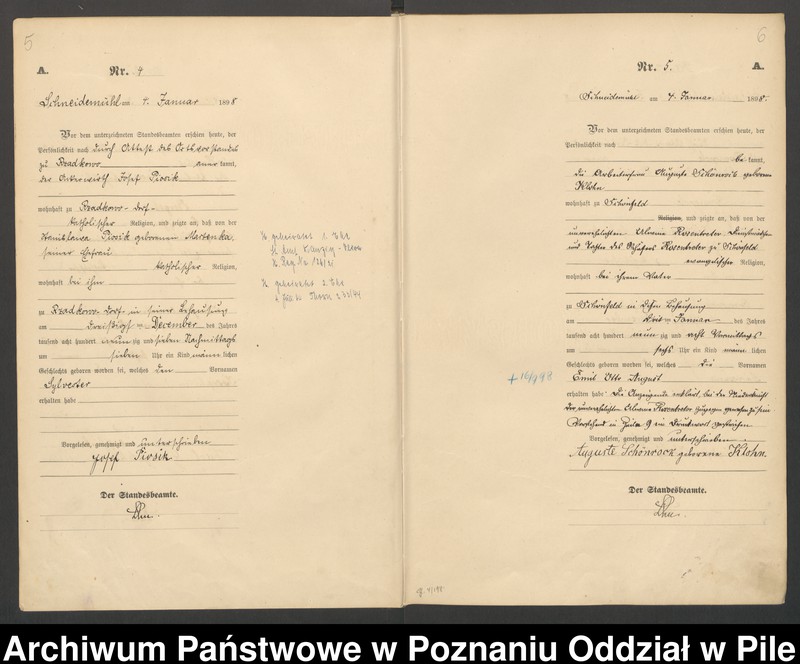 5
A.
Nr. 4
Schneidemühl am 4. Januar 1898
Vor dem unterzeichneten Standesbeamten erschien heute, der
Persönlichkeit nach durch Attest des Ortsvorstandes
zu Bzadkowo anerkannt,
der Ackerwirth Josef Piosik
wohnhaft zu Bzadkowo-dorf-
katholischer Religion, und zeigte an, daß von der
Stanislawa Piosik geborenen
seiner Ehefrau
katholischer Religion,
wohnhaft bei ihm
zu Bzadkowo-dorf in seiner Behausung
am dreißigsten December des Jahres
tausend acht hundert neunzig und sieben Nachmittags
um sieben Uhr ein Kind männlichen
Geschlechts geboren worden sei, welches den Vornamen
Sylvester
erhalten habe
Vorgelesen, genehmigt und unterschrieben
Josef Piosik
Der Standesbeamte.
geheiratet 1. Ehe
geheiratet 2. Ehe
6
Nr. 5.
A.
Schneidemühl am 4. Januar 1898.
Vor dem unterzeichneten Standesbeamten erschien heute, der
Persönlichkeit nach
bekannt,
die Arbeiterfrau Auguste Schönrock geborene
Klohn
wohnhaft zu Schönfeld
Religion, und zeigte an, daß von der
unverehelichten Alwine Rosentreter, Dienstmädchen
und Tochter des Schäfers Rosentreter zu Schönfeld
evangelischer Religion,
wohnhaft bei ihrem Vater
zu Schönfeld in dessen Behausung
am drei Januar des Jahres
tausend acht hundert neunzig und acht Vormittags
um sechs Uhr ein Kind männlichen
Geschlechts geboren worden sei, welches die Vornamen
Emil Otto August
erhalten habe. Die Anzeigende erklärt, bei der Niederkunft
der unverehelichten Alwine Rosentreter zugegen gewesen zu sein
Vorstehend in Zeile 9 ein Druckwort gestrichen
Vorgelesen, genehmigt und unterschrieben
Auguste Schönrock geborene Klohn.
Der Standesbeamte.
Archiwum Państwowe w Poznaniu Oddział w Pile